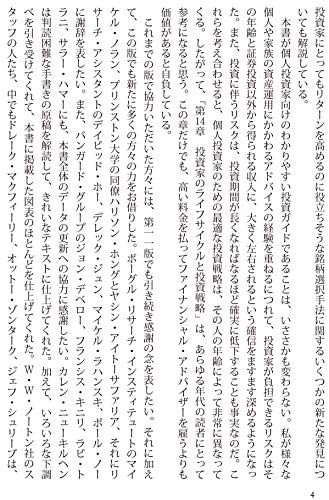 投資家にとってもリターンを高めるのに役立ちそうな銘柄選択手法に関するいくつかの新たな発見につ
いても解説している。
　本書が個人投資家向けのわかりやすい投資ガイドであることは、いささかも変わらない。私が様々な
個人や家族の資産運用にかかわるアドバイスの経験を重ねるにつれて、投資家が負担できるリスクはそ
の年齢と証券投資以外から得られる収入に、大きく左右されるという確信をますます深めるようになっ
た。また、投資に伴うリスクは、投資期間が長くなればなるほど確実に低下することも事実なのだ。こ
れらを考え合わせると、個人投資家のための最適な投資戦略は、その人の年齢によって非常に異なって
くる。したがって、「第14章　投資家のライフサイクルと投資戦略」は、あらゆる年代の読者にとって
参考になると思う。この章だけでも、高い料金を払ってファイナンシャル・アドバイザーを雇うよりも
価値があると自負している。
　これまでの版で協力いただいた方々には、第一一版でも引き続き感謝の念を表したい。それに加え
て、この版でも新たに多くの方々の力をお借りした。ボーグル・リサーチ・インスティテュートのマイ
ケル・ノラン、プリンストン大学の同僚ハリソン・ホングとヤシン・アイトーサファリア、それにリ
サーチ・アシスタントのデイビッド・ホー、デレック・ジュン、マイケル・ラハンスキ、ポール・ノー
に謝辞を表したい。また、バンガード・グループのジョン・デベロー、フランシス・キニリ、ラビ・ト
ラニ、サラー・ハマーにも、本書全体のデータの更新への協力に感謝したい。カレン・ニューキルヘン
は判読困難な手書きの原稿を解読して、きれいなテキストに仕上げてくれた。加えて、いろいろな下調
べを引き受けてくれて、本書に掲載した図表のほとんどを仕上げてくれた。W・W・ノートン社のス
タッフの人たち、中でもドレーク・マクフィーリー、オットー・ゾンターク、ジェフ・シュリーブは、
4